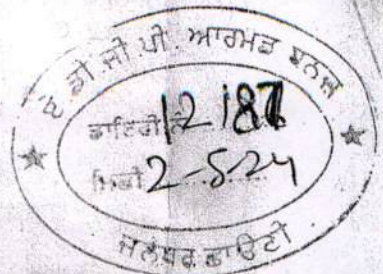 ਏ ਡੀ ਜੀ ਪੀ ਆਰਮਡ ਬਟਾਲ
ਡਾਇਰੀ ਨੰ 12187
ਮਿਤੀ 2-5-24
ਜਲੰਧਰ ਛਾਉਣੀ